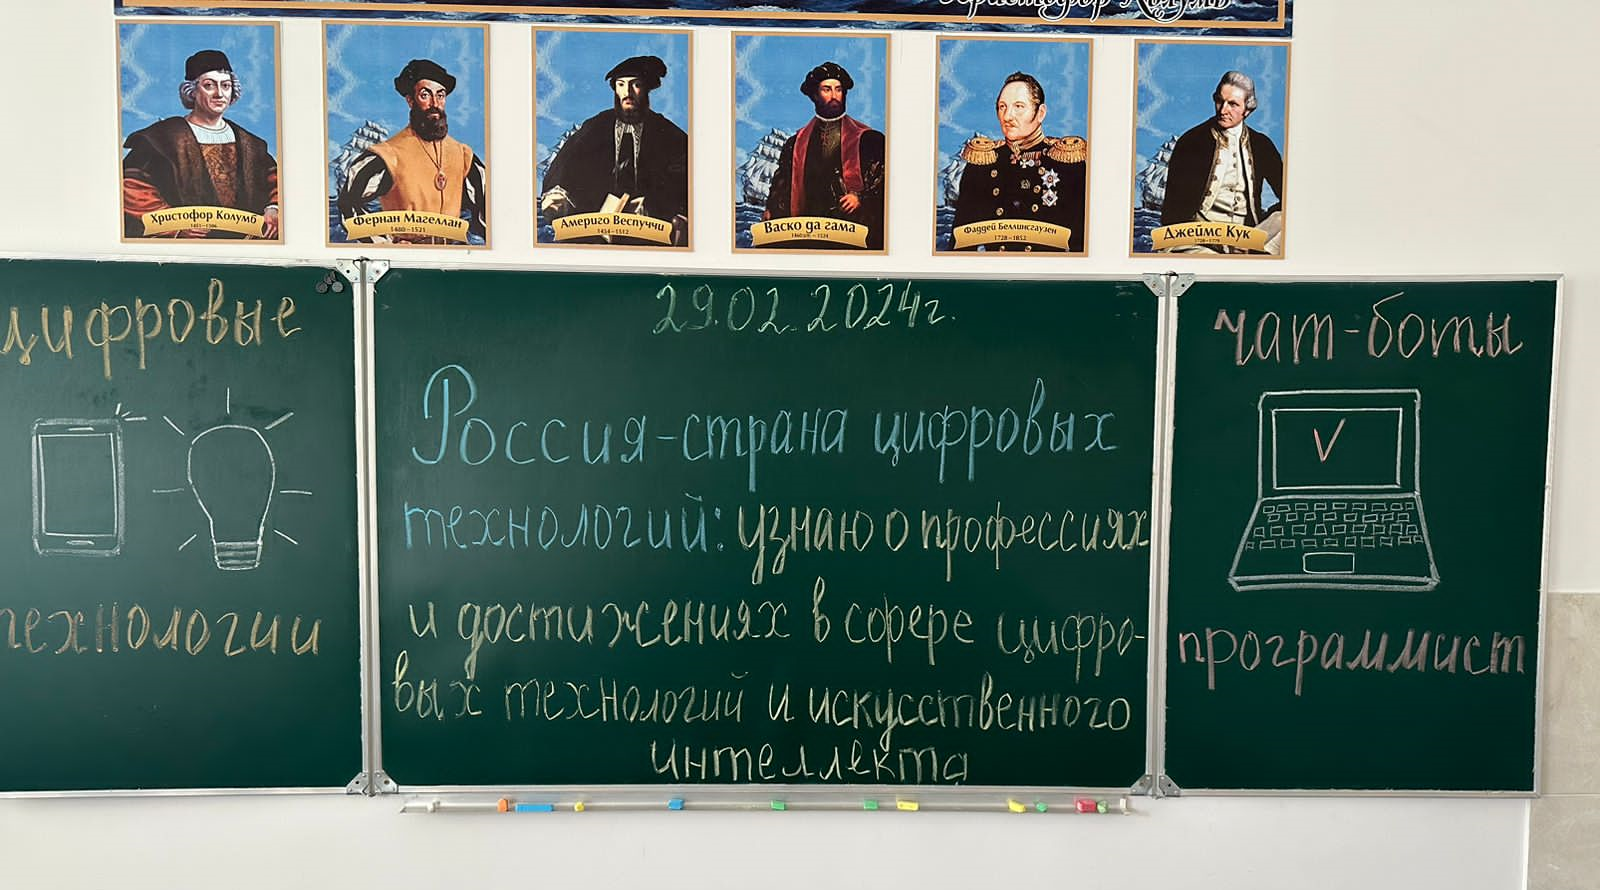 Христофор Колумб
Христофор Колумб
1451–1506
Фернан Магеллан
1480–1521
Америго Веспуччи
1454–1512
Васко да гама
Фаддей Беллинсгаузен
1728–1852
Джеймс Кук
1728–1779
цифровые
технологии
29.02.2024г.
Россия-страна цифровых
технологий: узнаю о профессиях
и достижениях в сфере цифро-
вых технологий и искусственного
интеллекта
чат-боты
программист